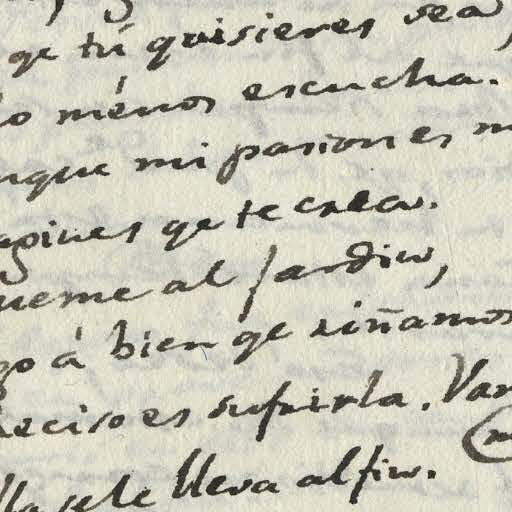 qe tú quisieres sea,
lo ménos escucha.
nque mi pasion es m
agines qe te crea.
ueme al jardin,
go á bien qe riñamos
reciso es sufrirla. Van
lla se le lleva al fin.